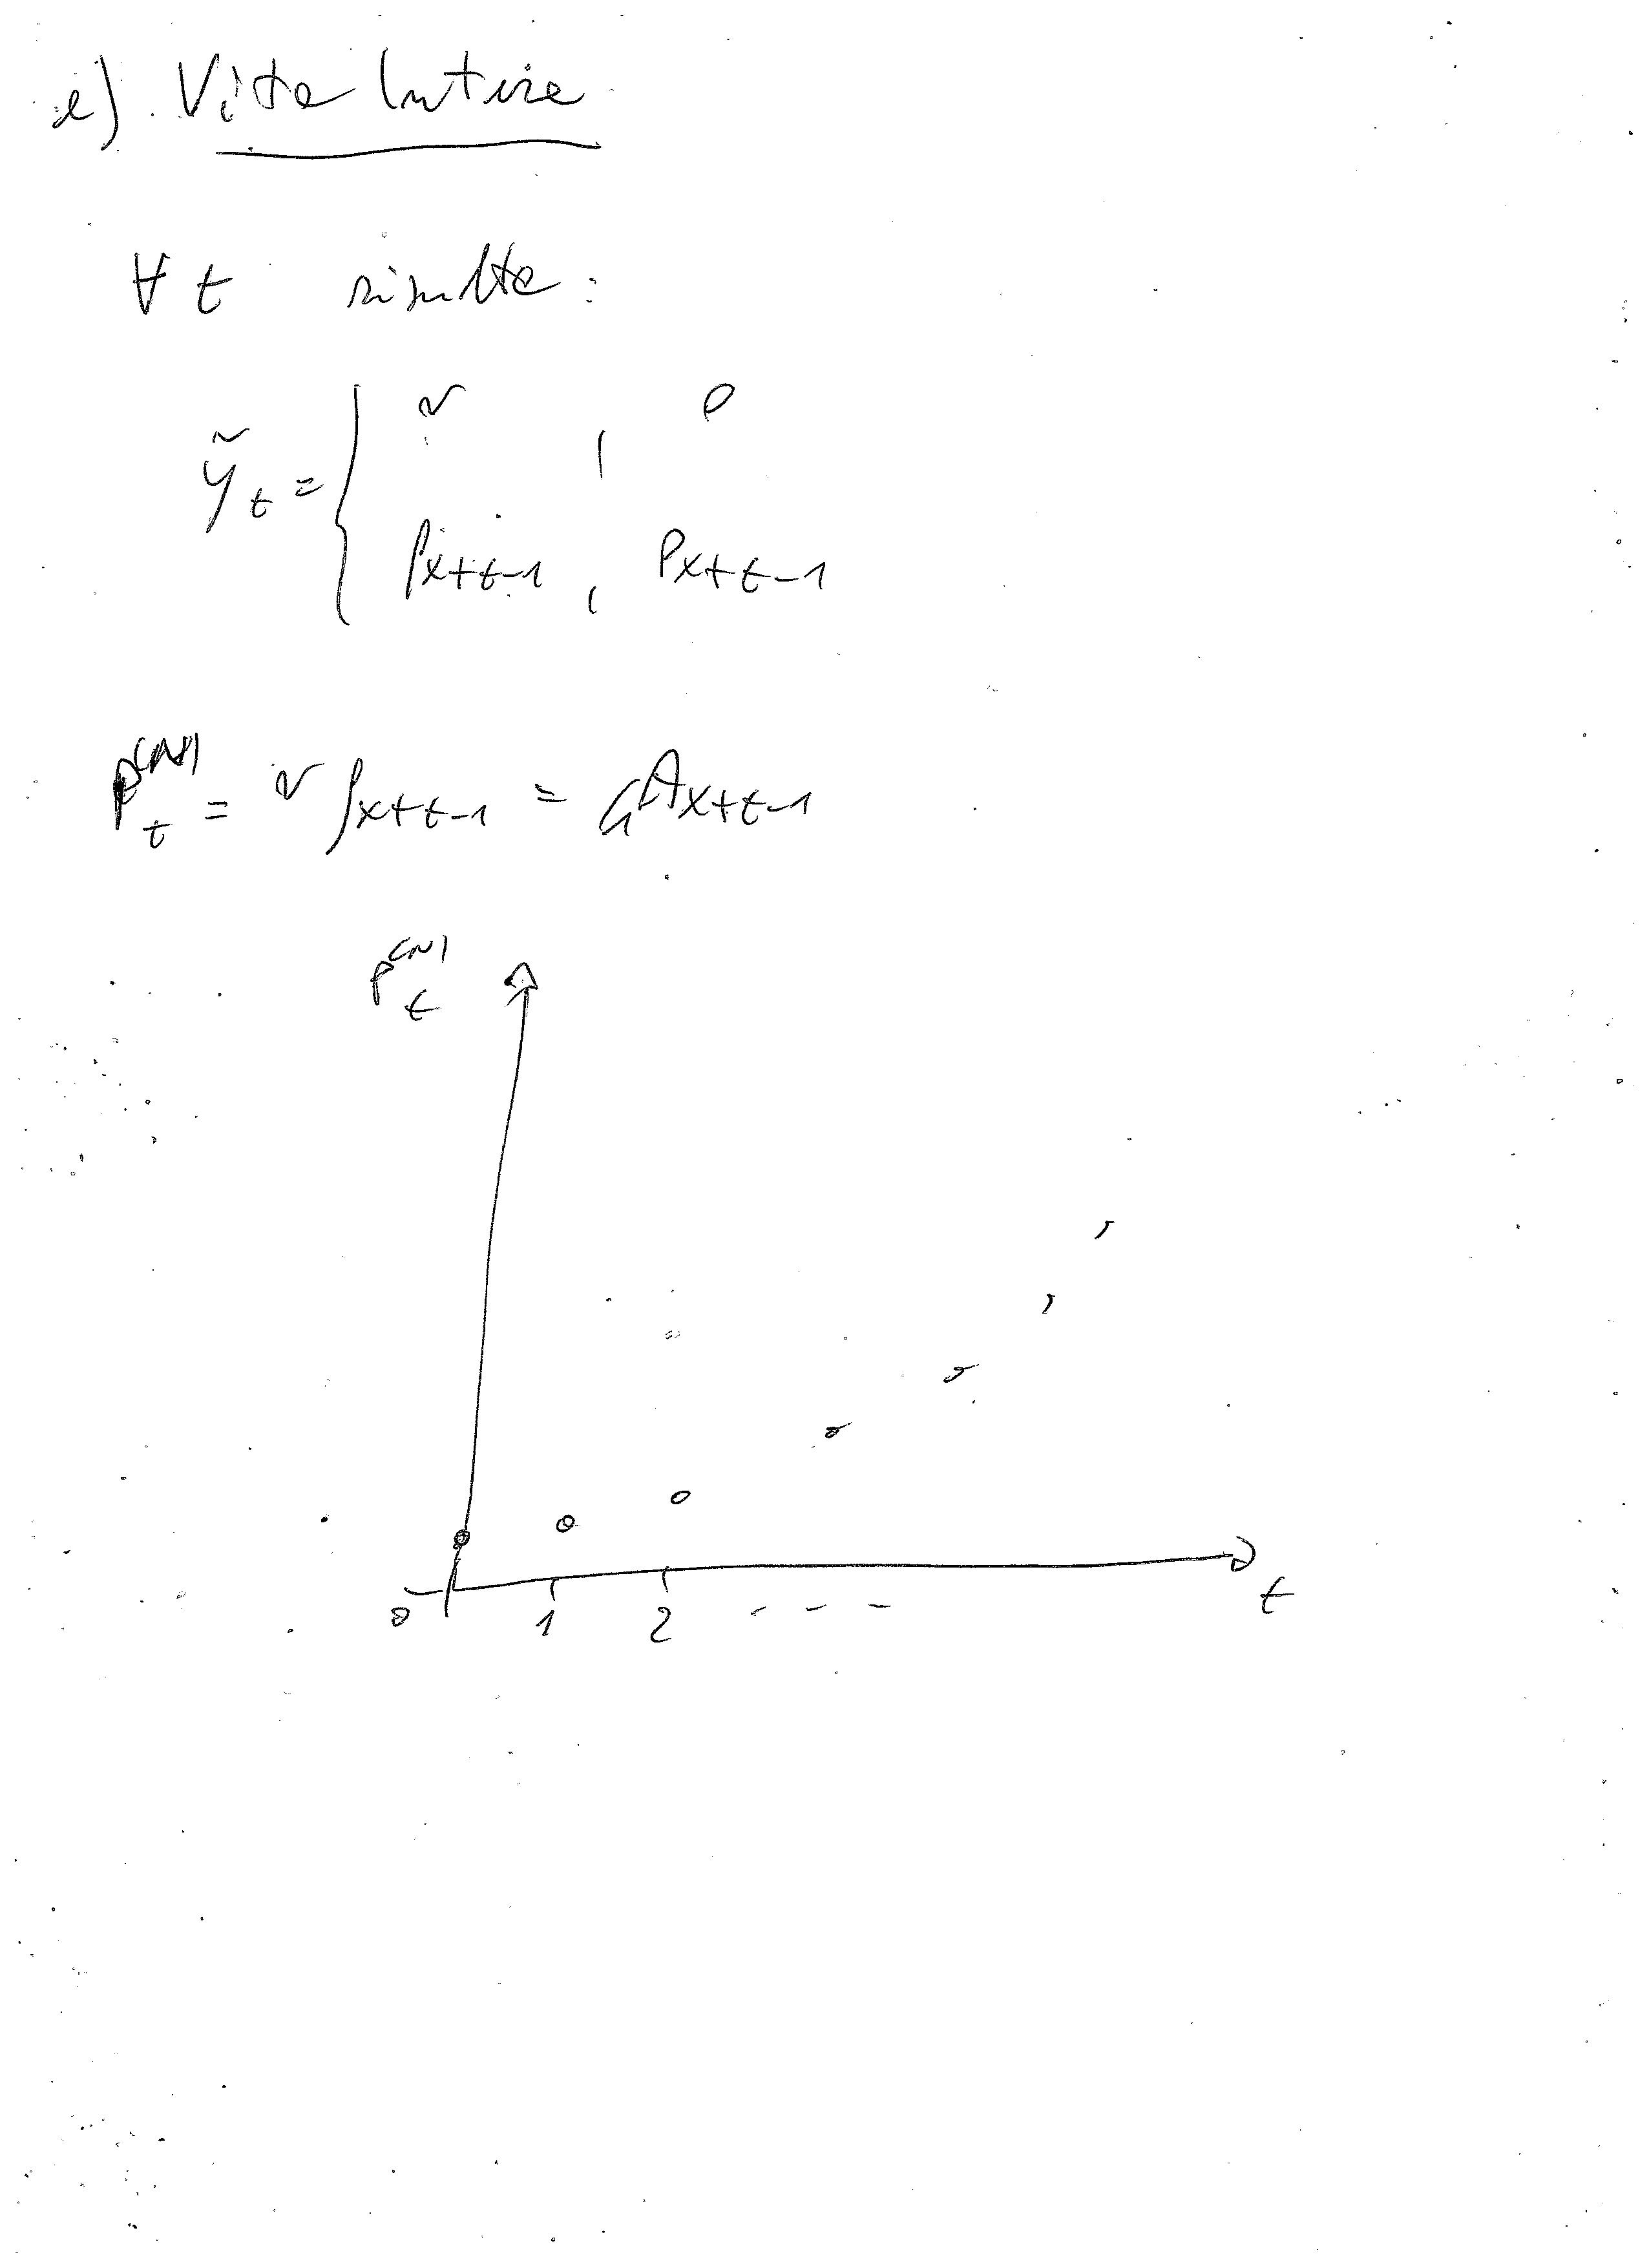 e). Vita Intera
∀ t risulta:
ỹ_t = { v , 0
ρ_{x+t-1} , p_{x+t-1}
P_t^{(N)} = v ρ_{x+t-1} = ₁A_{x+t-1}
P_t^{(N)}
0 1 2 - - - t